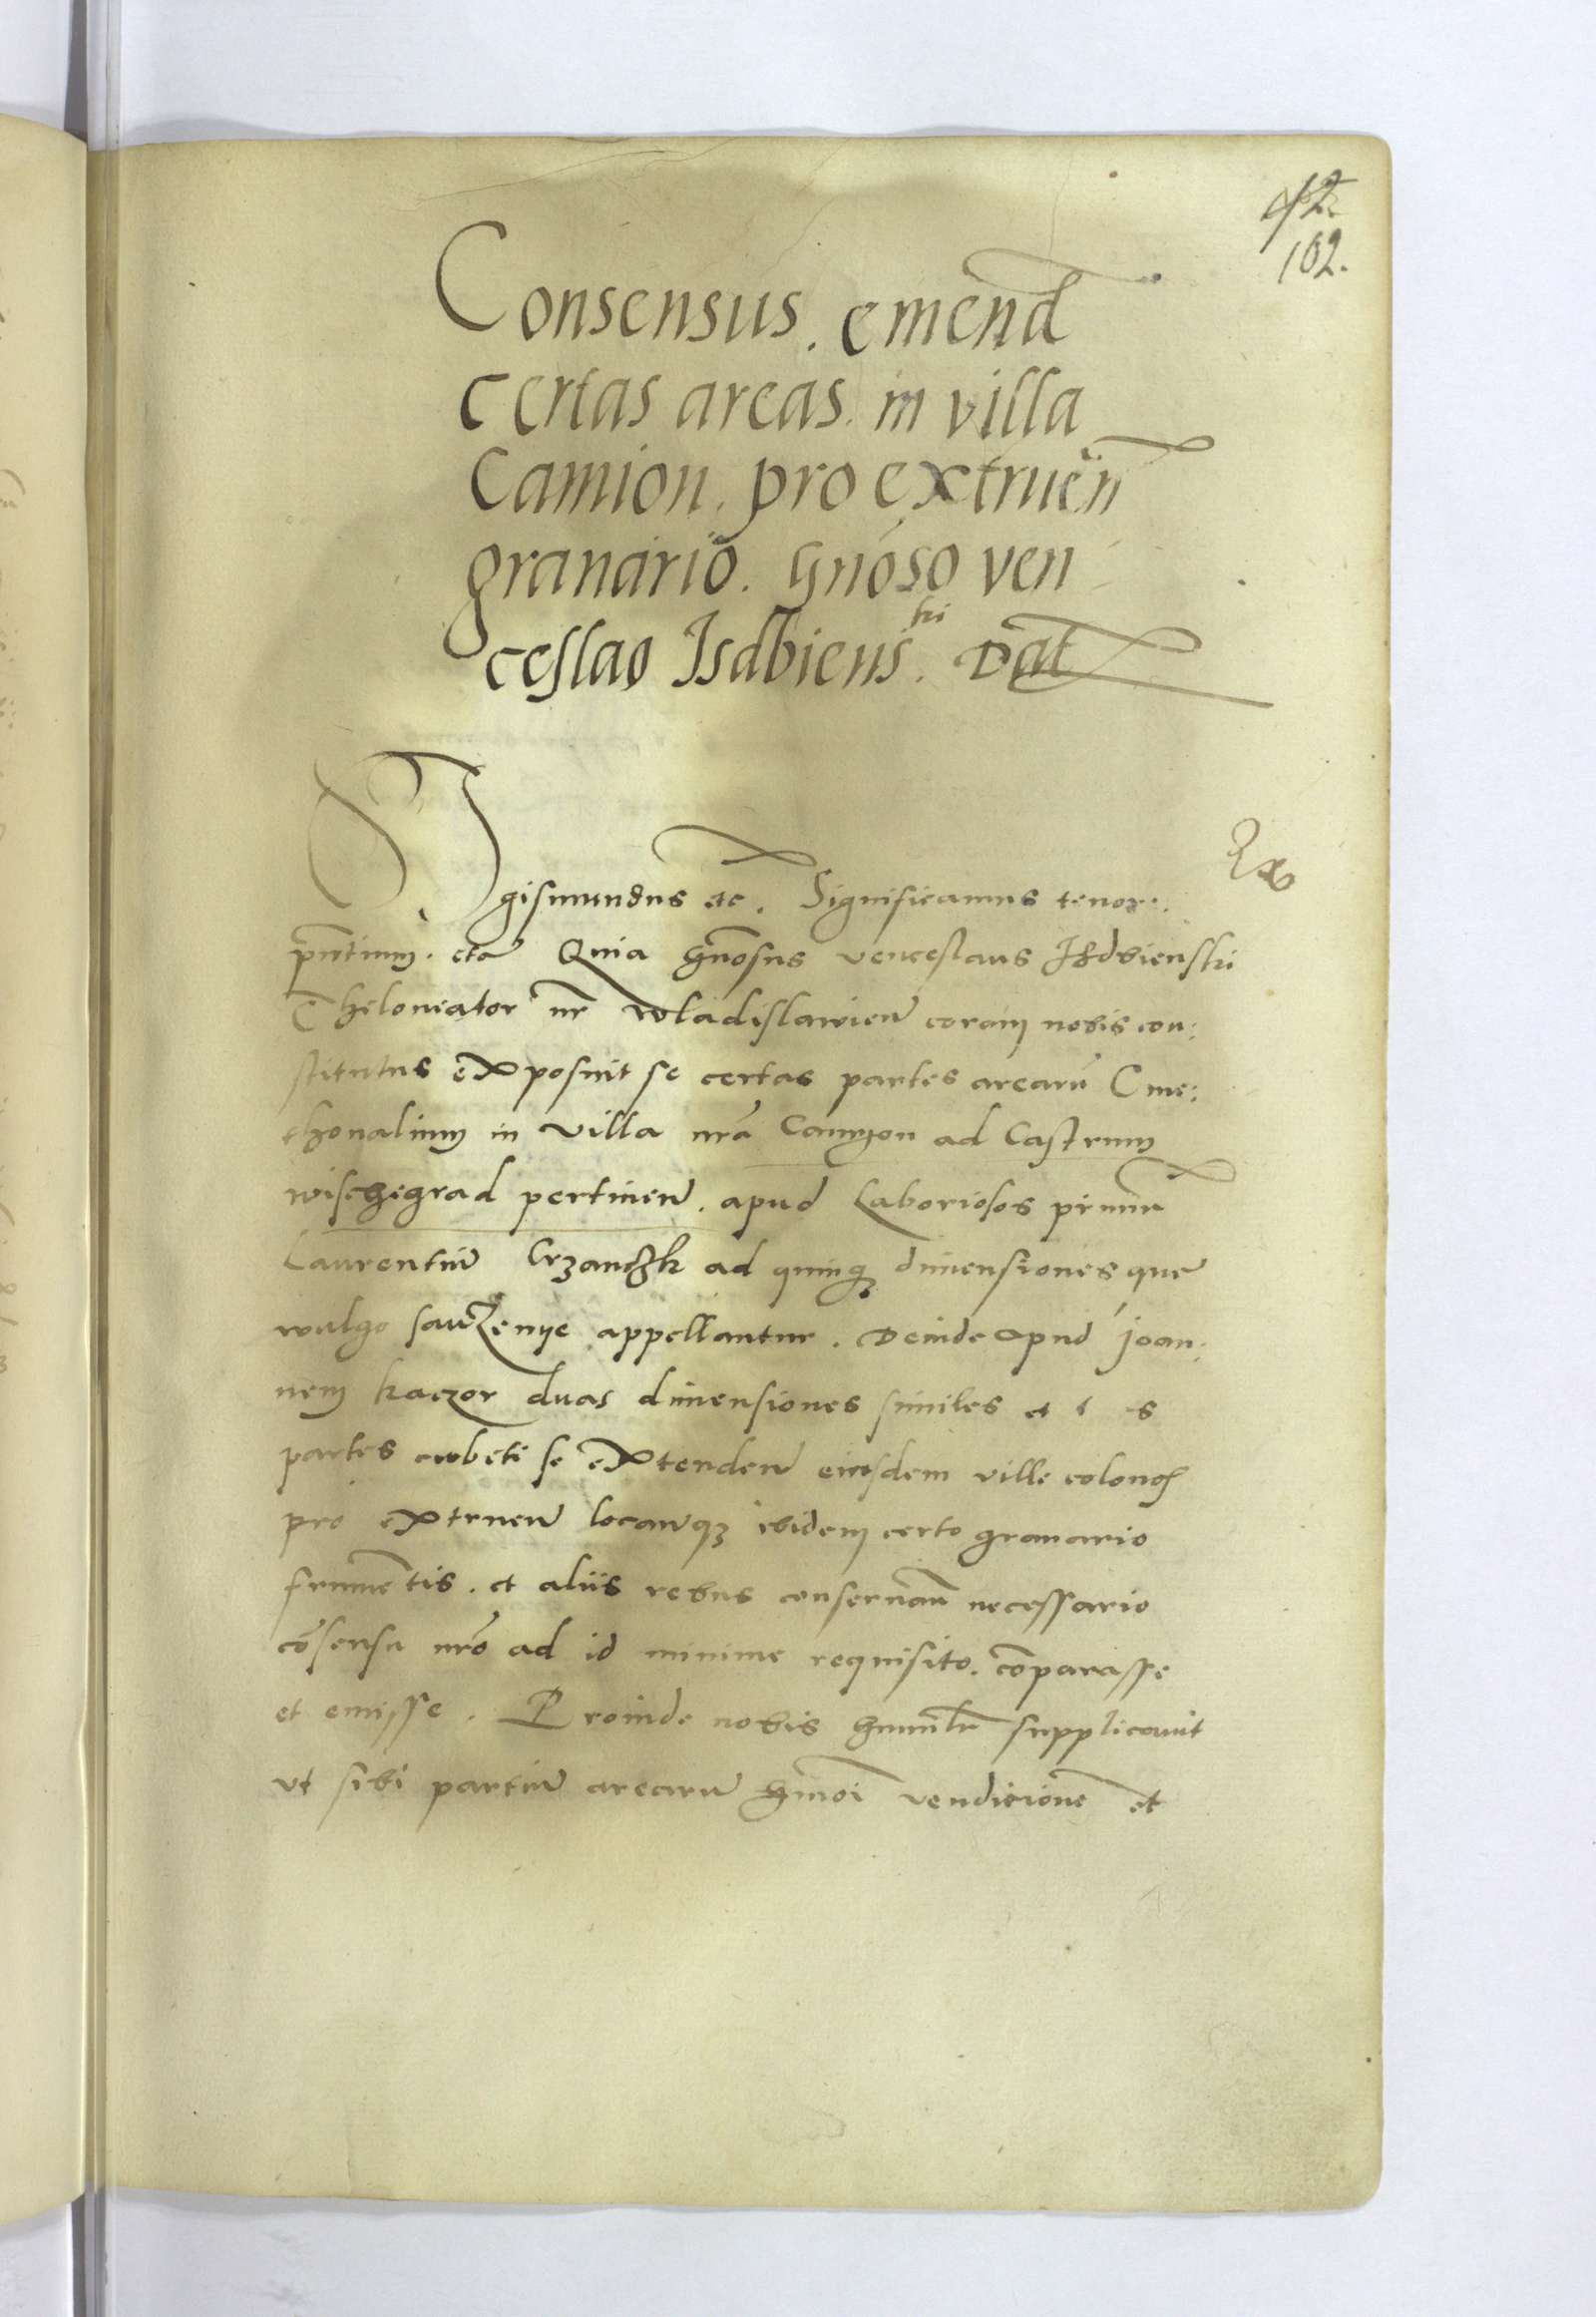 42
162.
Consensus. emend
certas areas. in villa
Camion. pro extruen
granario. Gnoso ven
ceslao Isdbiens ki. Dat
Sigismundus etc. Significamus tenore.
pntium. etc Quia gnosus venceslaus Isdbienski
Theloneator nr wladislawien coram nobis con:
stitutus exposuit se certas partes arearu Cme:
thonalium in villa nra Camyon ad Castrum
wischegrad pertinen. apud Laboriosos primu
Laurentiu Crzanczk ad quinqz dimensiones que
wulgo sanzenye appellantur. Deinde apud Joan:
nem kaczor duas dimensiones similes et
partes cubiti se extenden eiusdem ville colonos
pro extruen locanqz ibidem certo granario
frumentis. et aliis rebus conservan necessario
cosensu nro ad id minime requisito. comparasse
et emisse. Proinde nobis humilr supplicavit
vt sibi partiu arearu hmoi venditione et